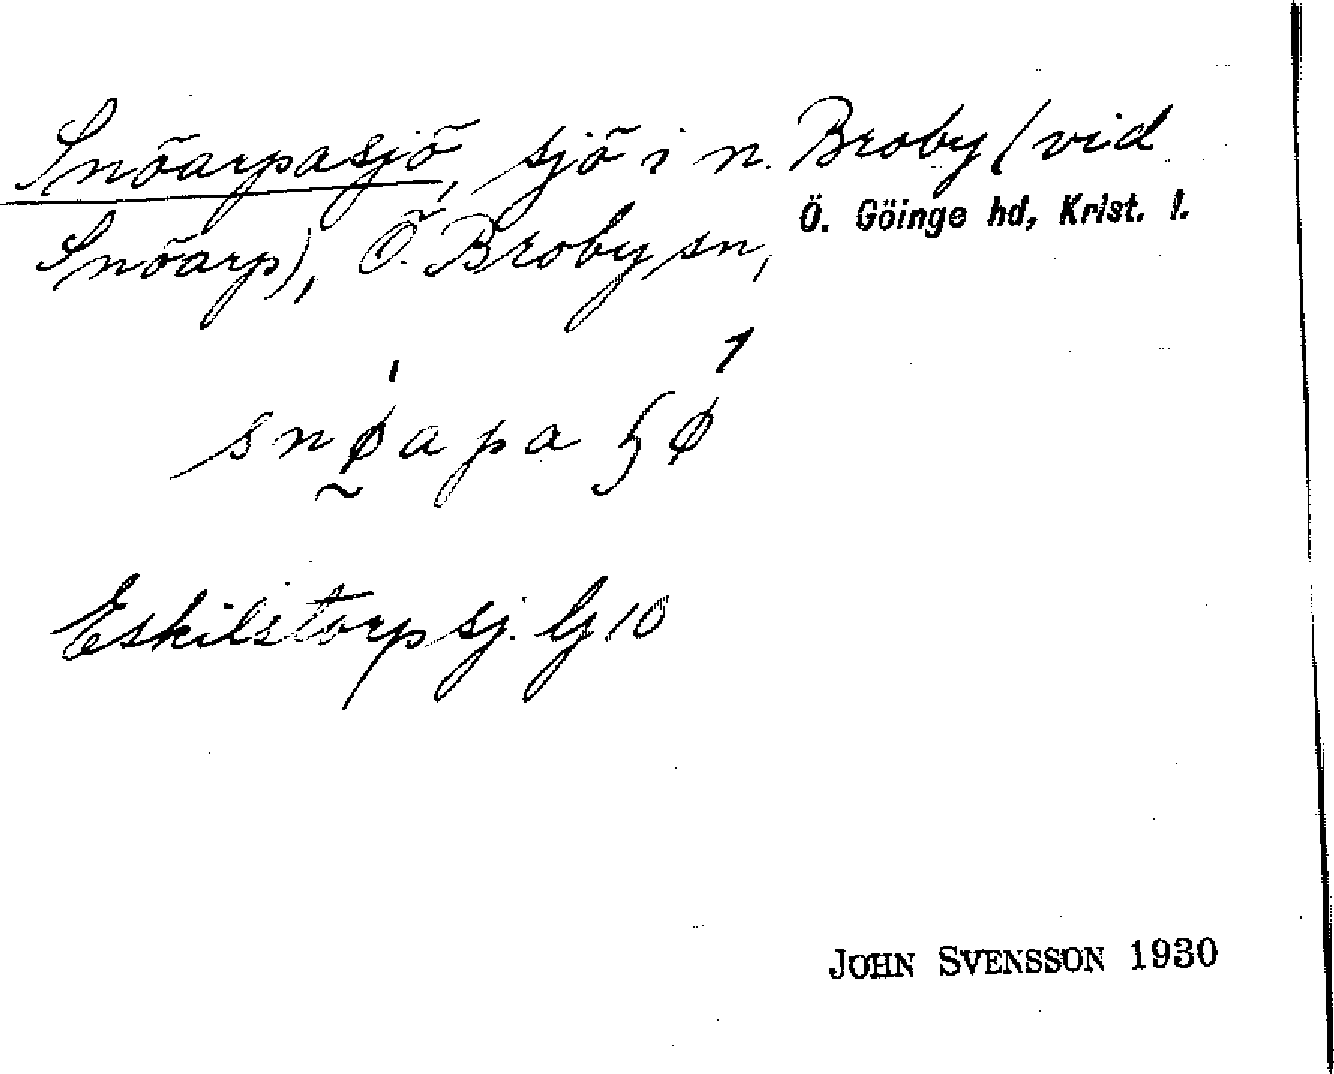 Snöarpasjö, sjö i n. Broby (vid
Ö. Göinge hd, Krist. l.
Snöarp), Ö. Broby sn,
snø̰apa ʃø
Eskilstorpsj. G 10
JOHN SVENSSON 1930